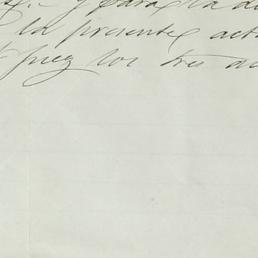 y para la
la presente act
juez los tres